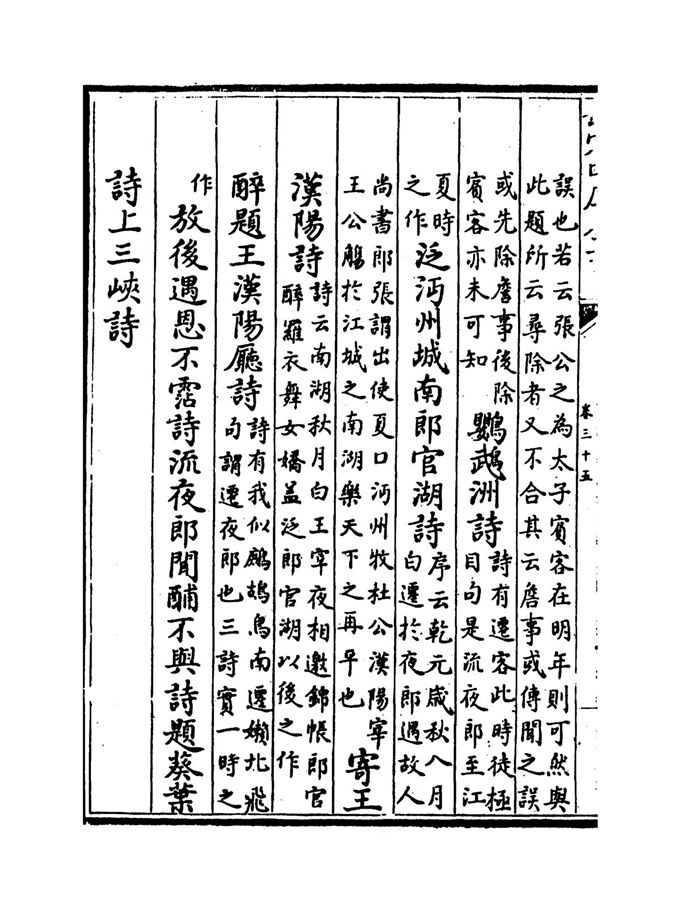 誤也若云張公之為太子賓客在明年則可然與
此題所云尋除者又不合其云詹事或傳聞之誤
或先除詹事後除
賓客亦未可知
鸚鵡洲詩
詩有遷客此時徒極
目句是流夜郎至江
夏時
之作
泛沔州城南郎官湖詩
序云乾元歲秋八月
白遷於夜郎遇故人
尚書郎張謂出使夏口沔州牧杜公漢陽宰
王公觴於江城之南湖樂天下之再平也
寄王
漢陽詩
詩云南湖秋月白王宰夜相邀錦帳郎官
醉羅衣舞女嬌蓋泛郎官湖以後之作
醉題王漢陽廳詩
詩有我似鷓鴣鳥南遷嬾北飛
句謂遷夜郎也三詩實一時之
作
放後遇恩不霑詩流夜郎聞酺不與詩題葵葉
詩上三峽詩
卷三十五